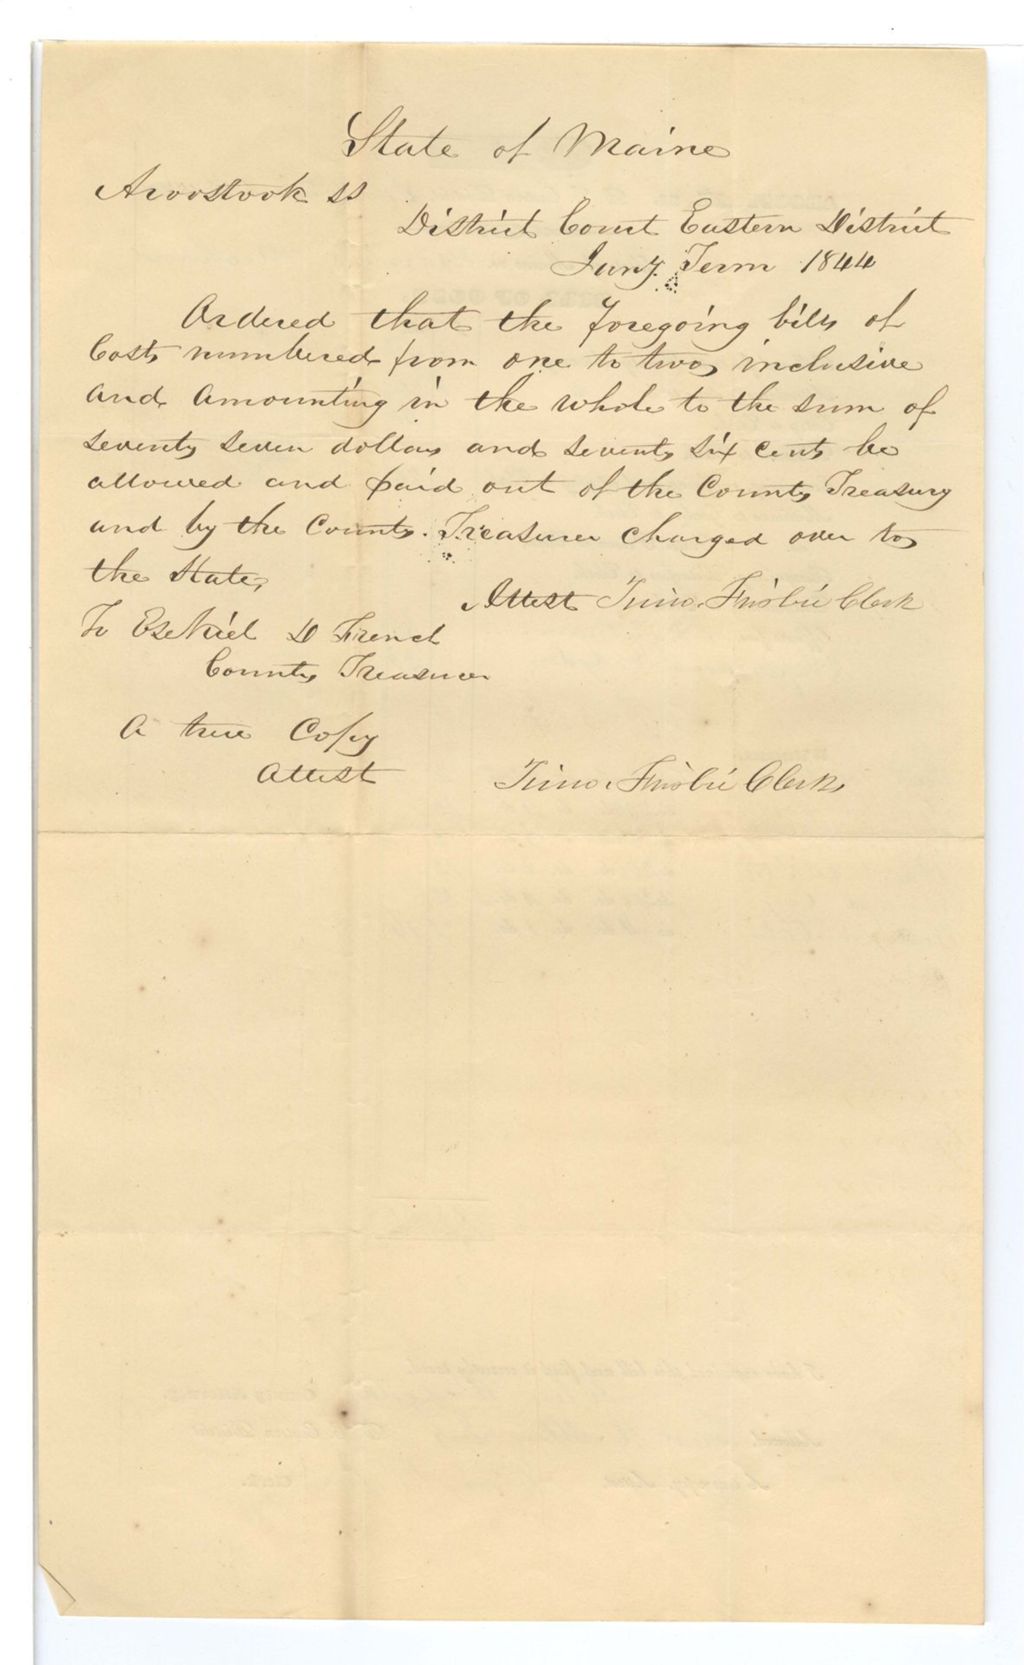 State of Maine
Aroostook ss
District Court Eastern District
Jany. Term 1844
Ordered that the foregoing bills of
Costs numbered from one to two inclusive
and amounting in the whole to the sum of
seventy seven dollars and seventy six cents be
allowed and paid out of the County Treasury
and by the County Treasurer charged over to
the State,
Attest Timo. Frisbie Clerk
To Ezekiel D French
County Treasurer
A true Copy
Attest Timo. Frisbie Clerk